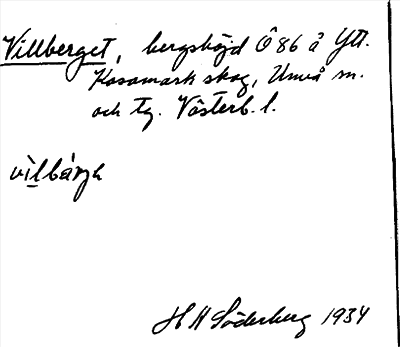 Villberget, bergshöjd Ö 86 å Ytt.
Kosamark skog, Umeå sn.
och tg. Västerb. l.
vìlbárjh
H H Söderberg 1934